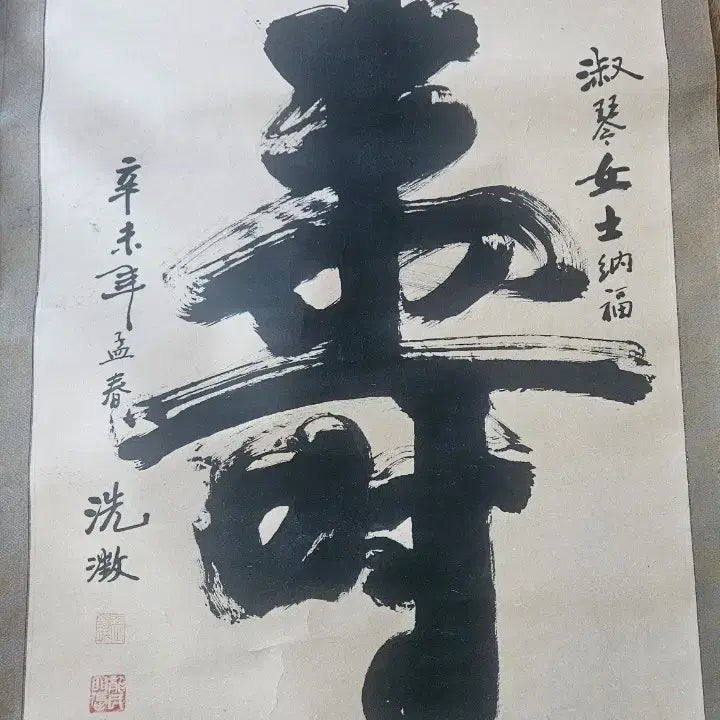 淑琴女士纳福
寿
辛未年孟春
洗澂